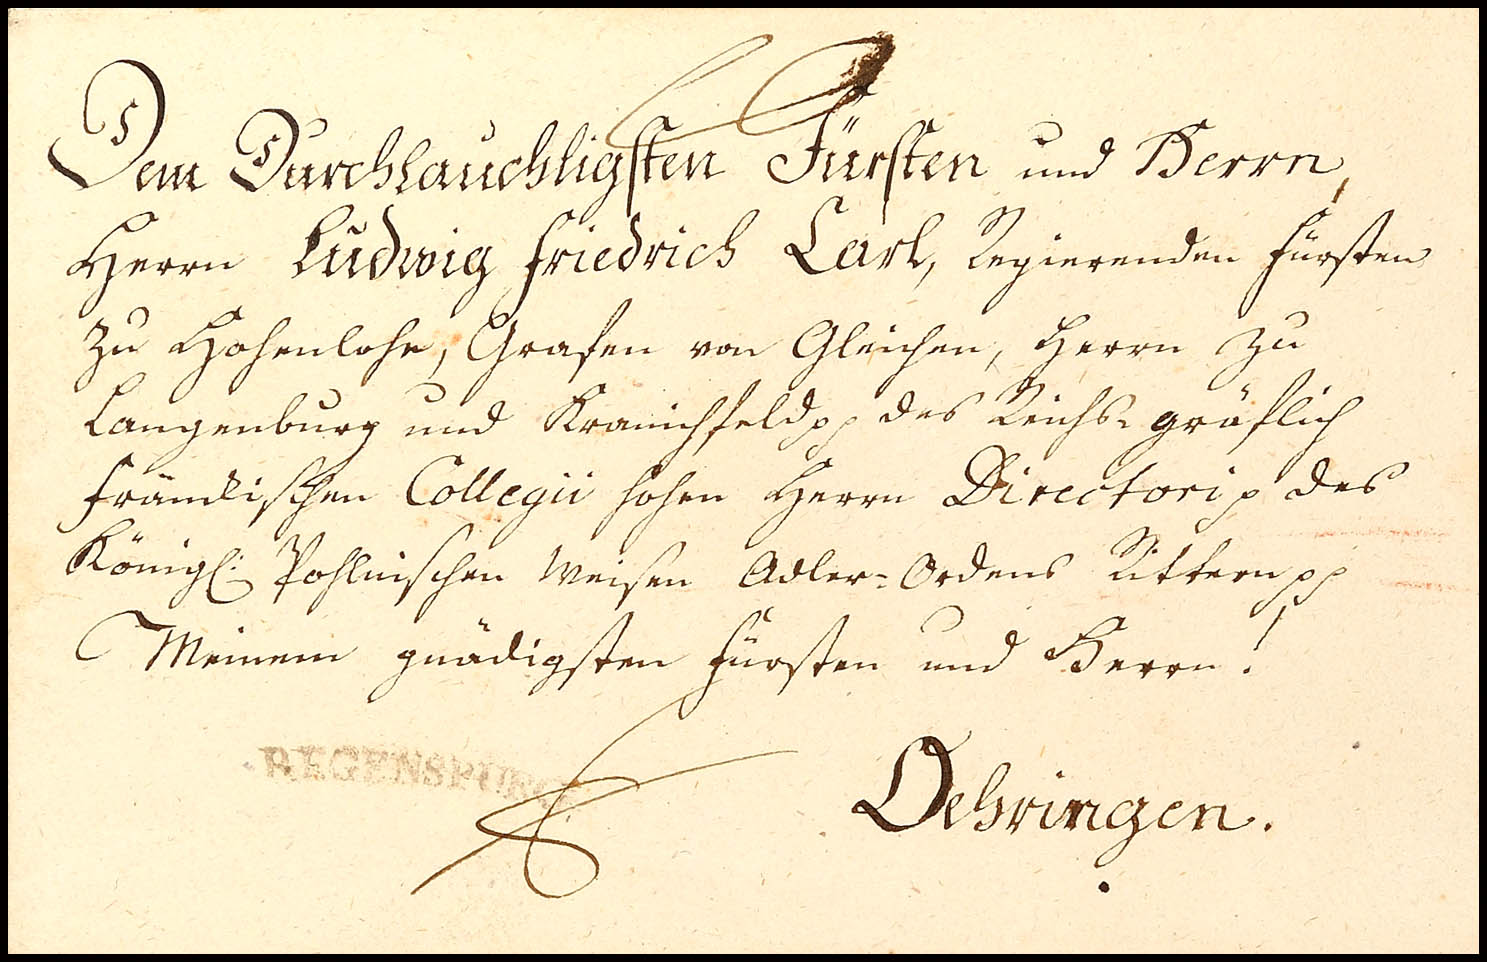 Dem Durchlauchtigsten Fürsten und Herrn,
Herrn Ludwig Friedrich Carl, Regierenden Fürsten
zu Hohenlohe, Grafen von Gleichen, Herrn zu
Langenburg und Kranichfeld pp des Reichs-gräflich
Fränkischen Collegii hohen Herrn Directori p des
Königl: Pohlnischen Weisen Adler-Ordens Rittern pp
Meinem gnädigsten Fürsten und Herrn!
REGENSPURG
Oehringen.